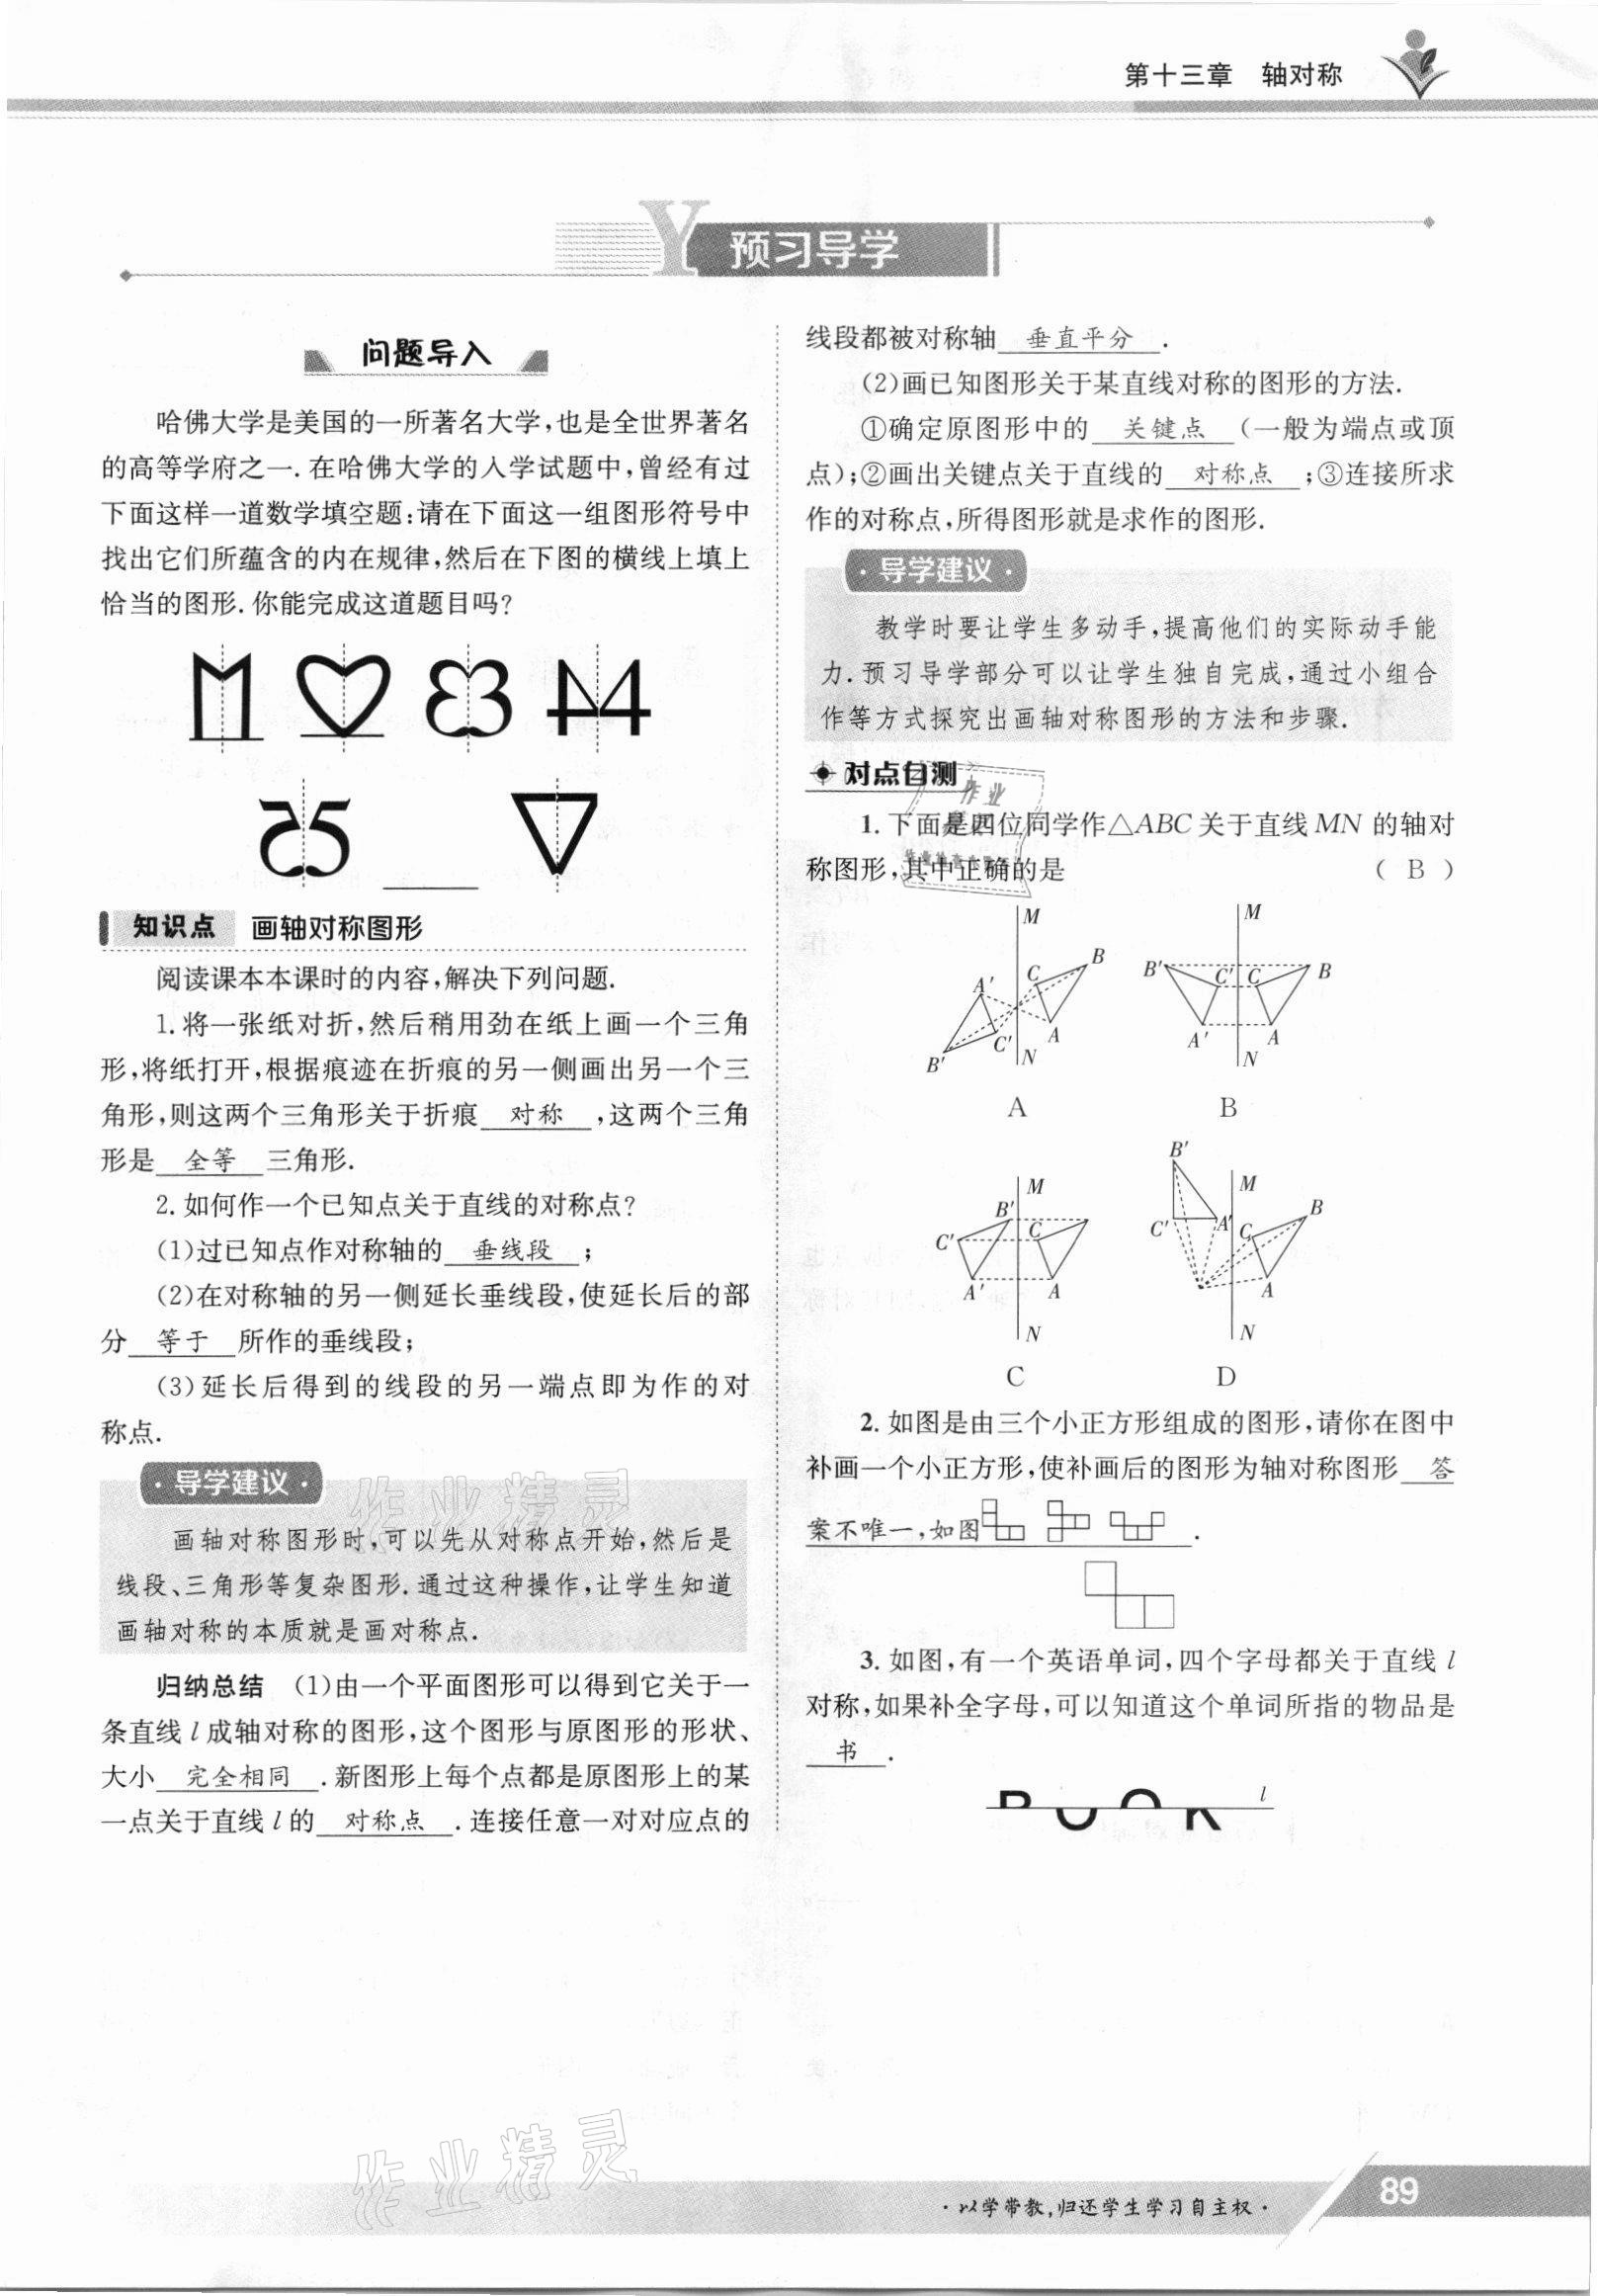 第十三章 轴对称
Y 预习导学
问题导入
哈佛大学是美国的一所著名大学,也是全世界著名
的高等学府之一. 在哈佛大学的入学试题中,曾经有过
下面这样一道数学填空题:请在下面这一组图形符号中
找出它们所蕴含的内在规律,然后在下图的横线上填上
恰当的图形. 你能完成这道题目吗?
知识点 画轴对称图形
阅读课本本课时的内容,解决下列问题.
1. 将一张纸对折,然后稍用劲在纸上画一个三角
形,将纸打开,根据痕迹在折痕的另一侧画出另一个三
角形,则这两个三角形关于折痕 对称 ,这两个三角
形是 全等 三角形.
2. 如何作一个已知点关于直线的对称点?
(1)过已知点作对称轴的 垂线段 ;
(2)在对称轴的另一侧延长垂线段,使延长后的部
分 等于 所作的垂线段;
(3)延长后得到的线段的另一端点即为作的对
称点.
·导学建议·
画轴对称图形时,可以先从对称点开始,然后是
线段、三角形等复杂图形. 通过这种操作,让学生知道
画轴对称的本质就是画对称点.
归纳总结 (1)由一个平面图形可以得到它关于一
条直线 l 成轴对称的图形,这个图形与原图形的形状、
大小 完全相同 . 新图形上每个点都是原图形上的某
一点关于直线 l 的 对称点 . 连接任意一对对应点的
线段都被对称轴 垂直平分 .
(2)画已知图形关于某直线对称的图形的方法.
①确定原图形中的 关键点 (一般为端点或顶
点);②画出关键点关于直线的 对称点 ;③连接所求
作的对称点,所得图形就是求作的图形.
·导学建议·
教学时要让学生多动手,提高他们的实际动手能
力. 预习导学部分可以让学生独自完成,通过小组合
作等方式探究出画轴对称图形的方法和步骤.
对点自测
1. 下面是四位同学作△ABC 关于直线 MN 的轴对
称图形,其中正确的是 ( B )
M
C B
A′
C′ A
B′ N
A
M
B′ C′ C B
A′ A
N
B
M
B′
C′ C
A′ A
N
C
B′
M
B
C′ A′ C
A
N
D
2. 如图是由三个小正方形组成的图形,请你在图中
补画一个小正方形,使补画后的图形为轴对称图形 答
案不唯一,如图 .
3. 如图,有一个英语单词,四个字母都关于直线 l
对称,如果补全字母,可以知道这个单词所指的物品是
书 .
l
作业精灵
作业精灵
作业
·以学带教,归还学生学习自主权·
89